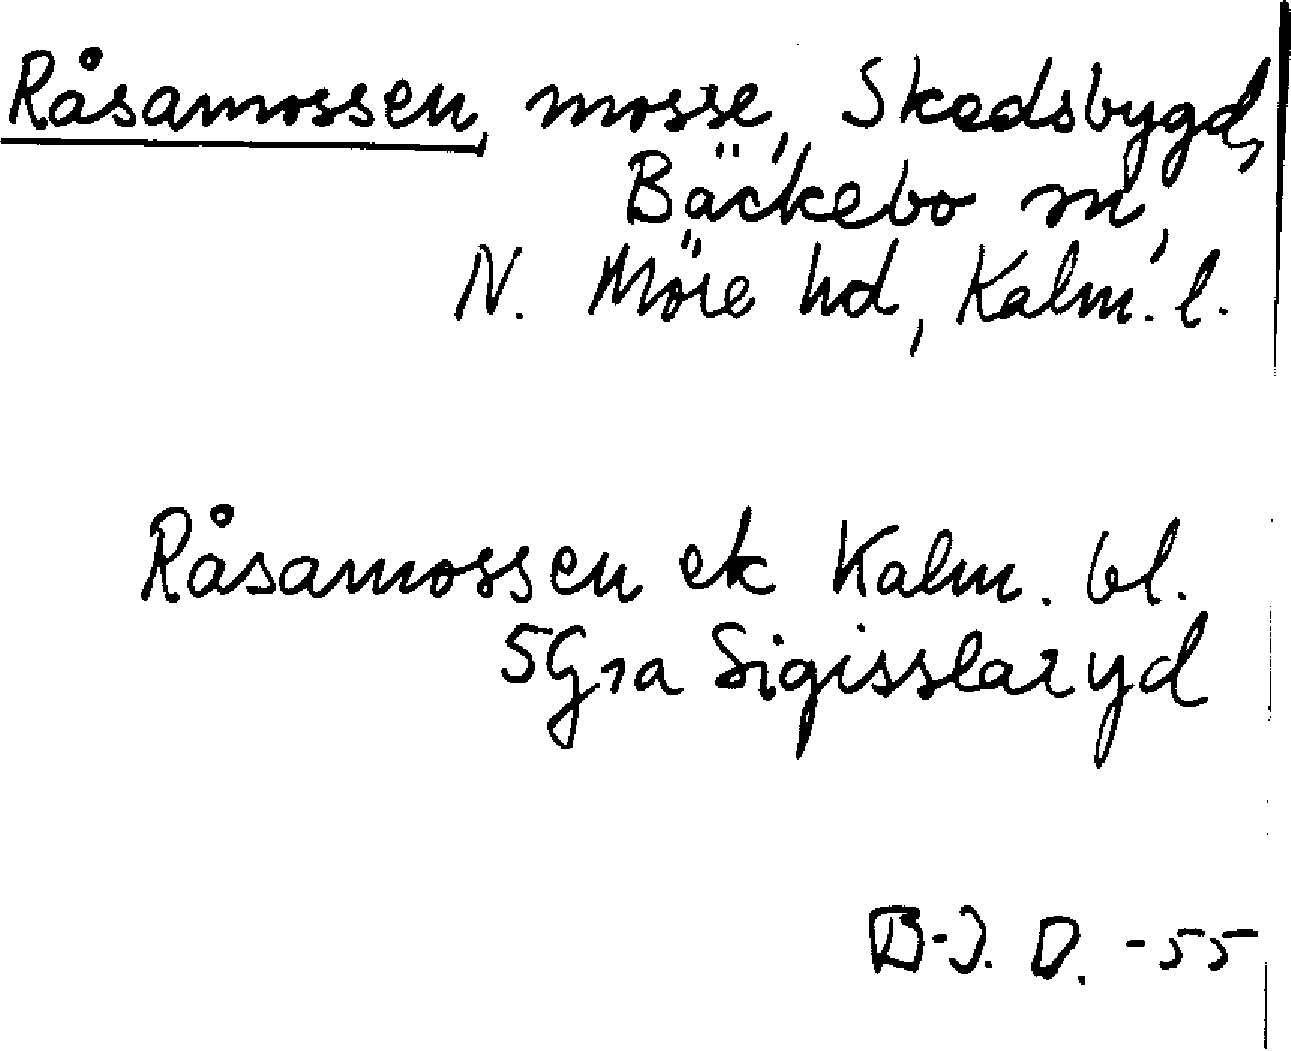 Råsamossen, mosse, Skedsbygd,
Bäckebo sn,
N. Möre hd, Kalm. l.
Råsamossen ek Kalm. bl.
5G1a Sigisslaryd
B-J. D. -55